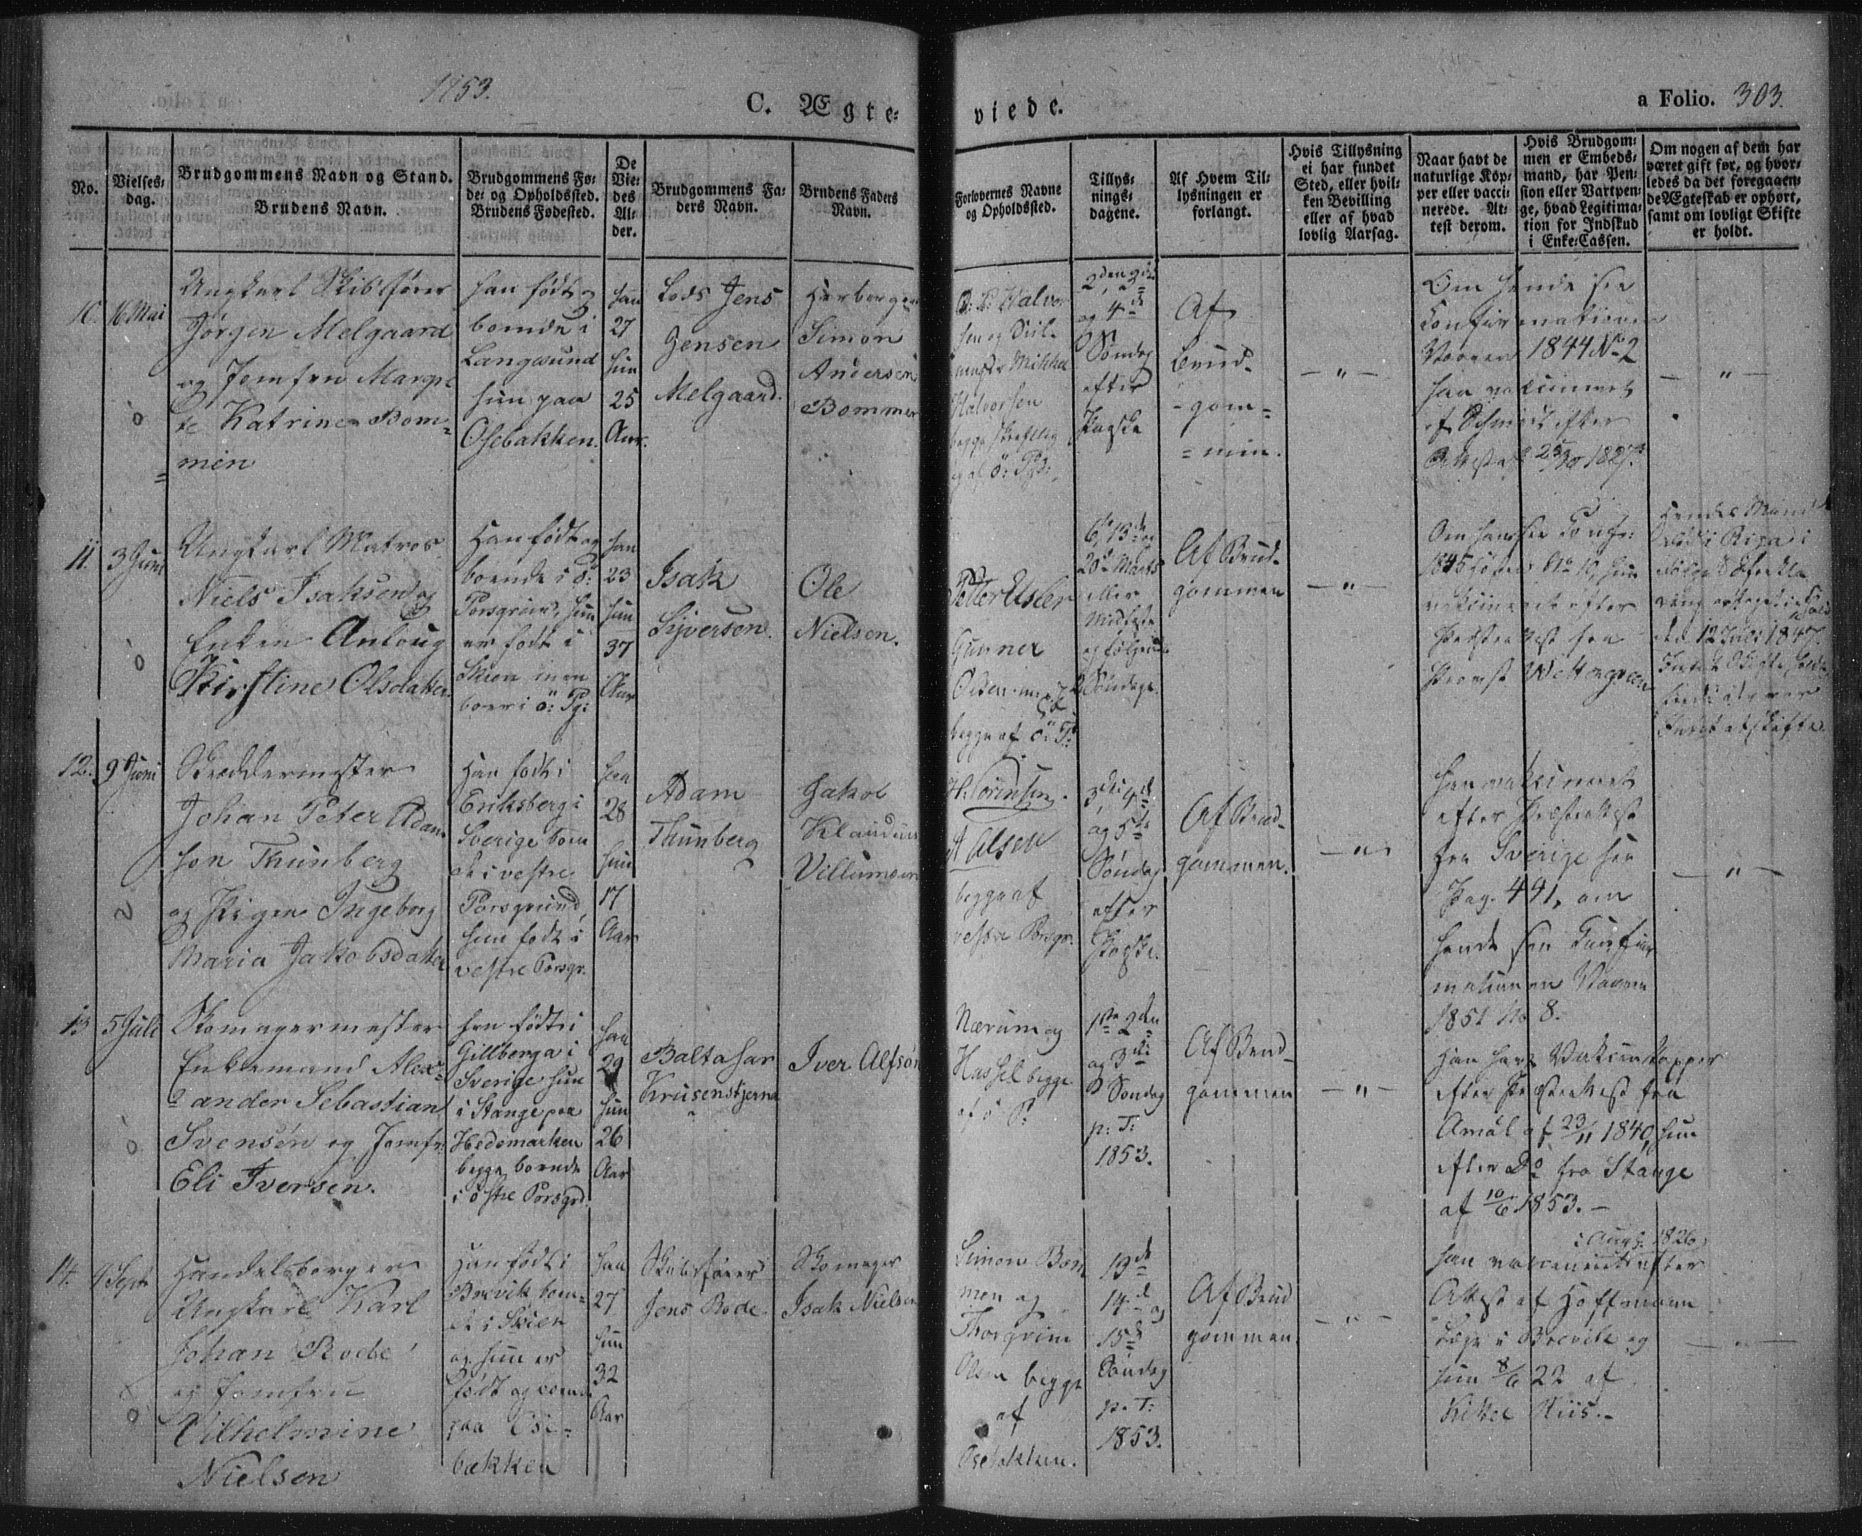 1853.
C. Ægte-
viede.
a Folio. 303.
No.
Vielses-
dag.
Brudgommens Navn og Stand.
Brudens Navn.
Brudgommens Fø-
de- og Opholdssted.
Brudens Fødested.
De
Vie-
des
Al-
der.
Brudgommens Fa-
ders Navn.
Brudens Faders
Navn.
Forlovernes Navne
og Opholdssted.
Tillys-
nings-
dagene.
Af Hvem Til-
lysningen er
forlangt.
Hvis Tillysning
ei har fundet
Sted, eller hvil-
ken Bevilling
eller af hvad
lovlig Aarsag.
Naar havt de
naturlige Kop-
per eller vacci-
nerede. At-
test derom.
Hvis Brudgom-
men er Embeds-
mand, har Pen-
sion eller Vartpen-
ge, hvad Legitima-
tion for Indskud
i Enke-Cassen.
Om nogen af dem har
været gift før, og hvor-
ledes da det foregaaen-
de Ægteskab er ophørt,
samt om lovligt Skifte
er holdt.
10.
16 Mai
Ungkarl Skibsfører
Jørgen Melgaard
og Jomfru Margre-
te Katrine Bom-
men
han født og
boende i
Langesund
hun paa
Osebakken.
han
27
hun
25
Aar.
Lods Jens
Jensen
Melgaard.
Simon
Andersen
Bommen
Halvorsen
2den, 3die
og 4de
Søndag
efter
Paaske
Af
Brud-
gom-
men.
Om hende see
Confirmationen
1844 No 2
han vakcineret
af Schmidt efter
Attest 1827.
11.
3 Juni
Ungkarl Matros
Niels Isaksen og
Enken Anlaug
Kirstine Olsdatter
Han født og
boende i ö:
Porsgrund, hun
er født i
Skien men
boer i ö: Pg:
han
23
hun
37
Aar
Isak
Syversen.
Ole
Nielsen.
Petter Esler
Gunner
begge af ö: P:
6te, 13de og
20de Marts
eller
Midfaste
og følgende
2 Søndage.
Af Brud-
gommen
1845 No 19, hun
vakcineret efter
Præsteattest fra
Provst Wettergreen
Hendes Mand
døde i Riga i
12 Juli 1847.
12.
9 Juni
Skreddermester
Johan Peter Adam-
son Thunberg
og Pigen Ingeborg
Maria Jakobsdatter
Han født i
Eriksberg i
Sverige boen-
de i vestre
Porsgrund,
hun født i
vestre Porsgr.
han
28
hun
17
Aar
Adam
Thunberg
Jakob
Klaudius
Villumsen
H. Sörensen.
A Olsen
begge af
vestre Porsgr.
3die, 4de
og 5te
Søndag
efter
Paaske.
Af Brud-
gommen.
han vakcineret
efter Præsteattest
fra Sverige see
Pag. 491, om
hende see Confir-
mationen
1851 No 8.
13
5 Juli
Skomagermester
Enkemand Alex-
ander Sebastian
Svensön og Jomfr.
Eli Iversen.
han født i
Gillberga i
Sverige hun
i Stange paa
Hedemarken
begge boende
i östre Porsgrd.
han
29
hun
26
Aar
Baltasar
Krusenstjerna
Iver Alfsön
Nærum og
Hassel begge
af ö P:
1ste 2den
og 3die
Søndag
p: T:
1853.
Af Brud-
gommen
Han havt Vakcinekopper
efter Præsteattest fra
Amål af 23/11 1840, hun
efter Do fra Stange
af 10/6 1853.
14.
9 Sept
Handelsborger
Ungkarl Karl
Johan Rode
og Jomfru
Vilhelmine
Nielsen
Han født i
Brevik boen-
de i Skien
og hun er
født og boende
paa Ose-
bakken
han
27
hun
32
Aar
Skibsfører
Jens Rode.
Skomager
Isak Nielsen
Simon Bom
men og
Thorgrim
Olsen begge
af
Osebakken.
13de
14de og
15de
Søndag
p. T:
1853.
Af Brud-
gommen
i Aug. 1826
han vakcineret efter
Attest af Hoffmann
Læge i Brevik og
hun 8/6 22 af
Kittel Riis.